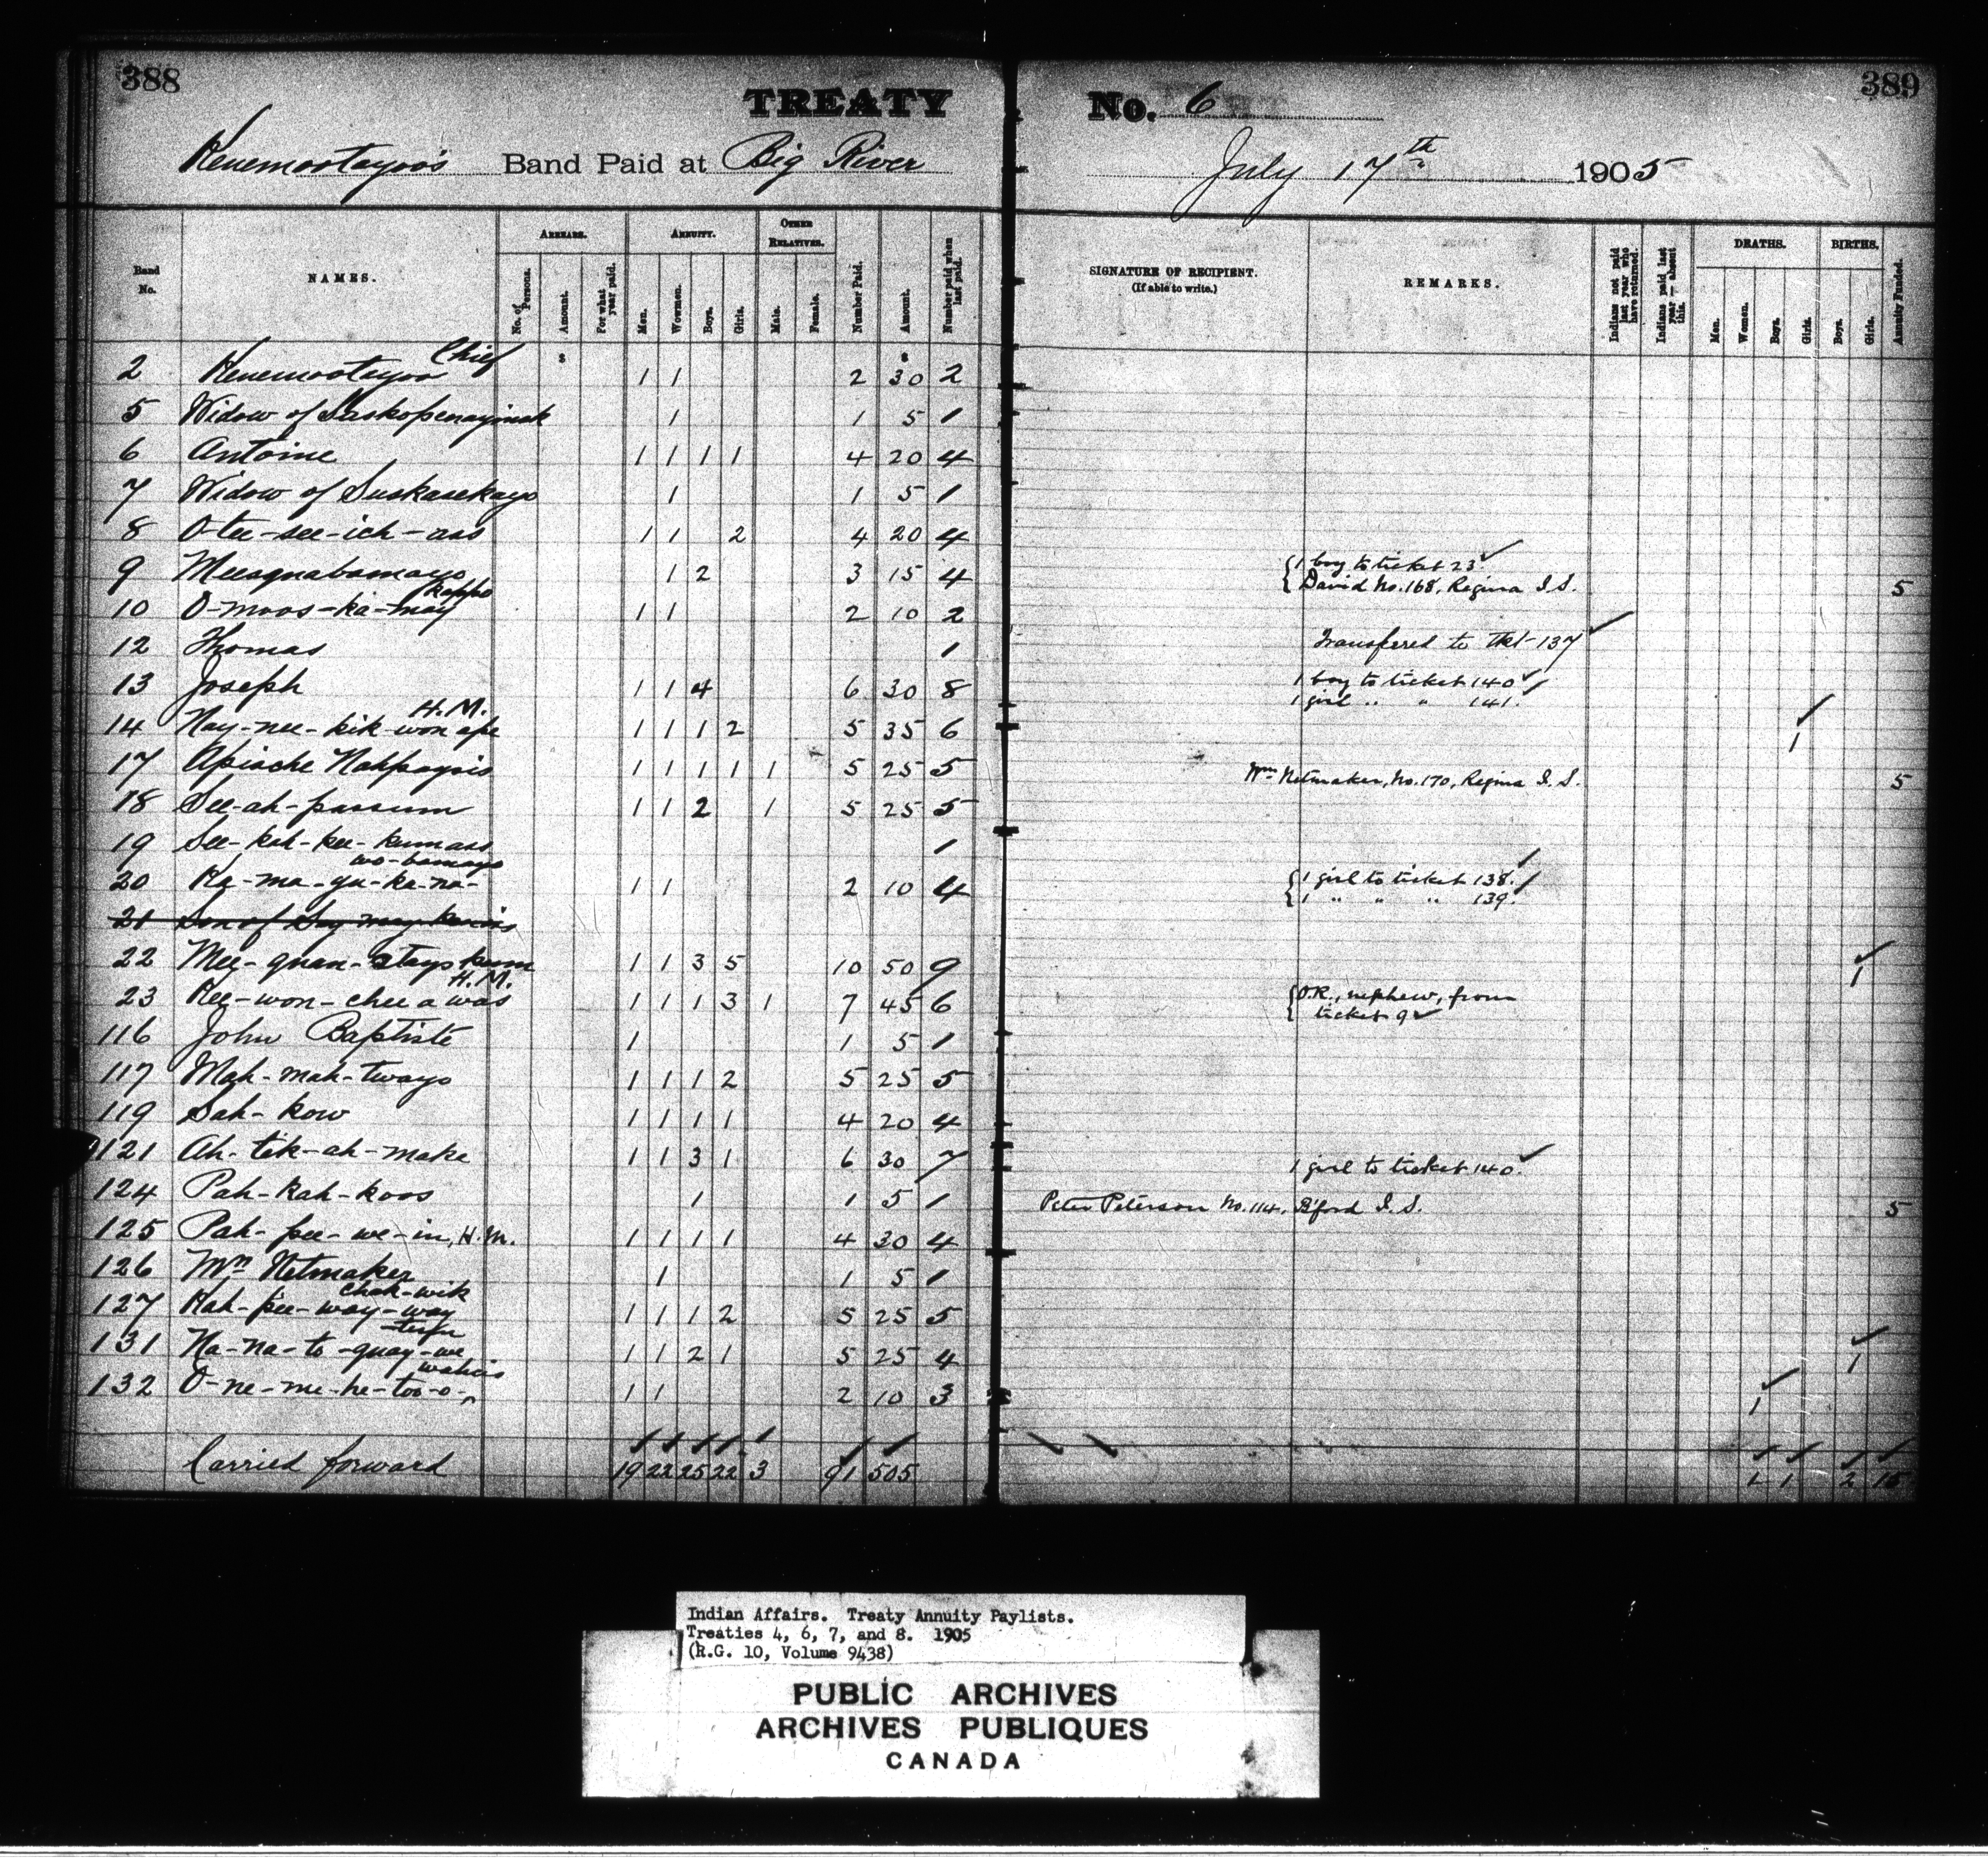 388
389
TREATY No. 6
Kenemootayoo's Band Paid at Big River July 17th 1905
Band No.
NAMES.
ARREARS.
No. of Persons.
Amount.
For what year paid.
ANNUITY.
Men.
Women.
Boys.
Girls.
OTHER RELATIVES.
Male.
Female.
Number Paid.
Amount.
Number paid when last paid.
SIGNATURE OF RECIPIENT.
(If able to write.)
REMARKS.
Indians not paid last year who have returned.
Indians paid last year — absent this.
DEATHS.
Men.
Women.
Boys.
Girls.
BIRTHS.
Boys.
Girls.
Annuity Funded.
2 Kenemootayoo Chief 1 1 2 30 2
5 Widow of 1 1 5 1
6 Antoine 1 1 1 1 4 20 4
7 Widow of Suskasekayo 1 1 5 1
8 O-tee-see-ich-ass 1 1 2 4 20 4
9 1 2 3 15 4 { 1 boy to ticket 23 ✓
{ David No. 168, Regina I.S. 5
10 O-moos-ka-may kappo 1 1 2 10 2
12 Thomas 1 Transfered to tkt 137 ✓
13 Joseph 1 1 4 6 30 8 1 boy to ticket 140 ✓
1 girl " " 141. ✓
14 Nay-nee-kik-won ape H.M. 1 1 1 2 5 35 6 1 ✓
17 Apische Nahpaysis 1 1 1 1 1 5 25 5 Wm Netmaker, No. 170, Regina I.S. 5
18 See-ah-passum 1 1 2 1 5 25 5
19 See-kah-kee-kumass 1
20 Ka-ma-yu-ka-na- wo-bamayo 1 1 2 10 4 { 1 girl to ticket 138. ✓
{ 1 " " " 139. ✓
21 Son of
22 Mee-quan-stayskum 1 1 3 5 10 50 9 1 ✓
23 Kee-won-chee a was H.M. 1 1 1 3 1 7 45 6 { O.R., nephew, from
{ ticket 9 ✓
116 John Baptiste 1 1 5 1
117 Mah-mah-tways 1 1 1 2 5 25 5
119 Sah-kow 1 1 1 1 4 20 4
121 Ah-tik-ah-make 1 1 3 1 6 30 7 1 girl to ticket 140. ✓
124 Pah-kah-koos 1 1 5 1 Peter Peterson No. 114, B'ford I.S. 5
125 Pah-pee-we-in, H.M. 1 1 1 1 4 30 4
126 Wm Netmaker 1 1 5 1
127 Kah-pee-way-way chak-wik 1 1 1 2 5 25 5
131 Na-na-to-quay-we 1 1 2 1 5 25 4 1 ✓
132 O-ne-me-he-too-o- 1 1 2 10 3 1 ✓
Carried forward 19 22 25 22 3 91 505 1 1 2 15
Indian Affairs. Treaty Annuity Paylists.
Treaties 4, 6, 7, and 8. 1905
(R.G. 10, Volume 9438)
PUBLIC ARCHIVES
ARCHIVES PUBLIQUES
CANADA